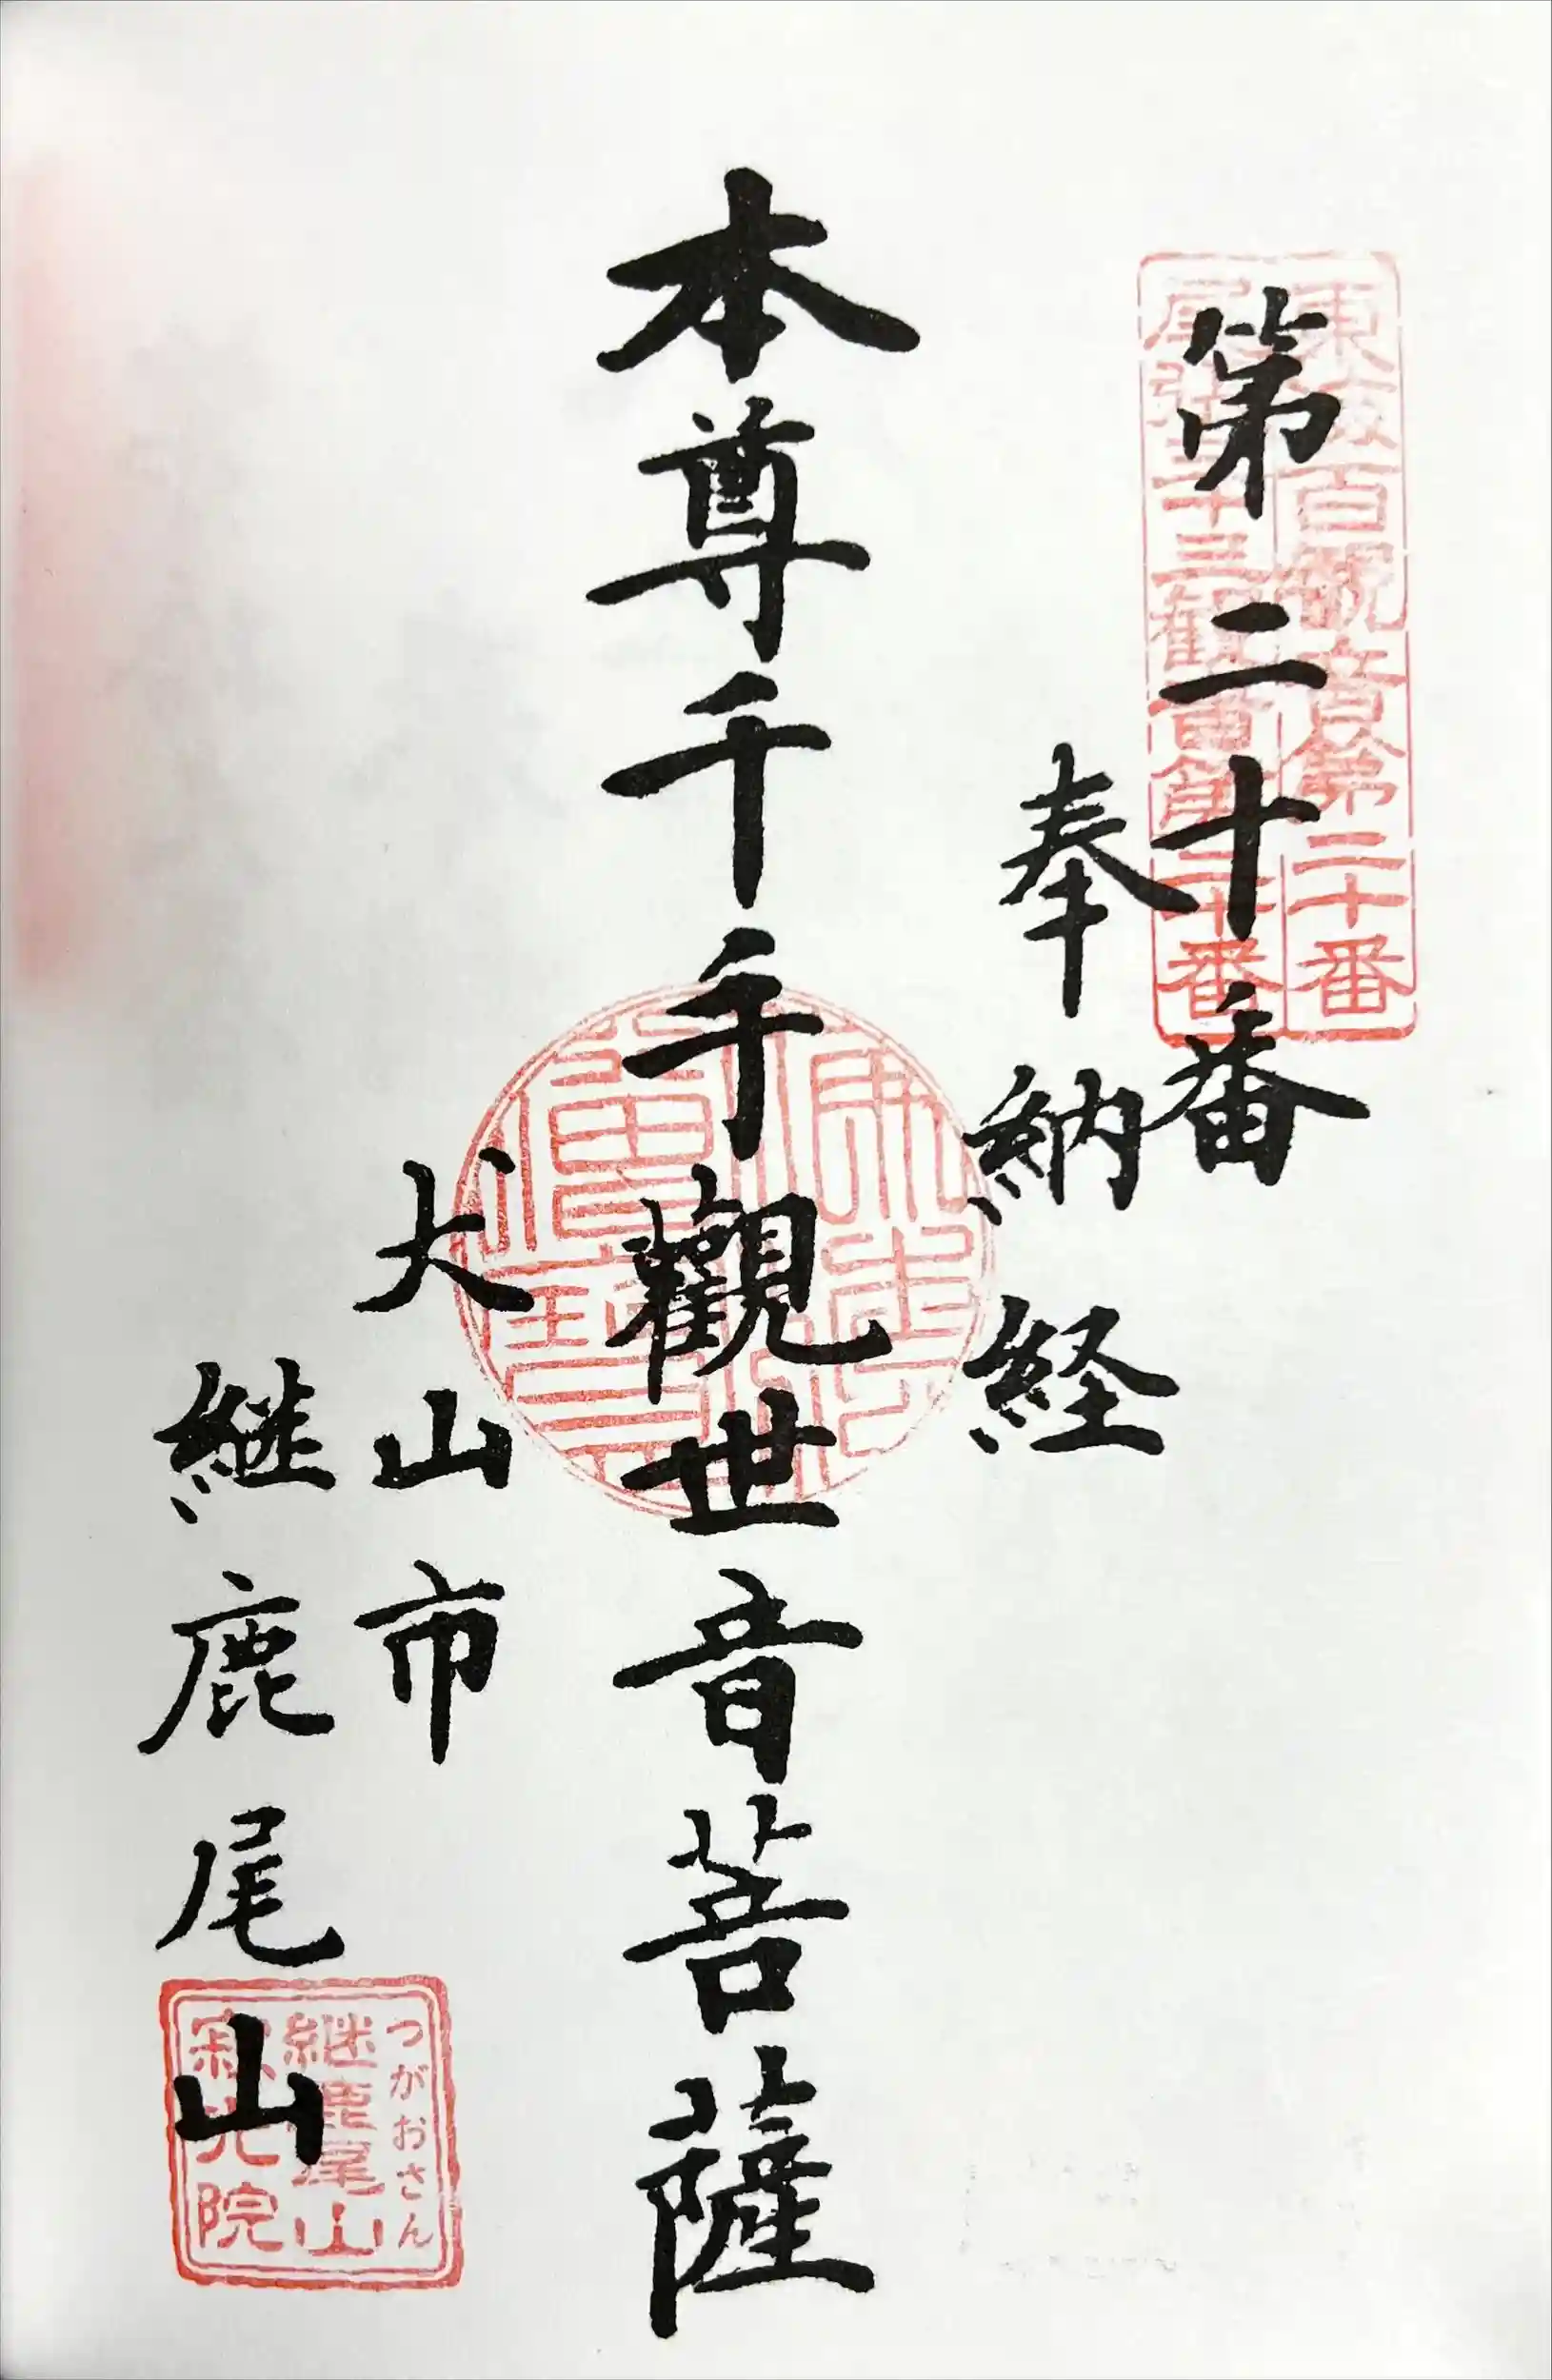 東海百観音第二十番
尾張三十三観音第二十番
第二十番
奉納経
本尊千手觀世音菩薩
犬山市
継鹿尾山
つがおさん
継鹿尾山
寂光院